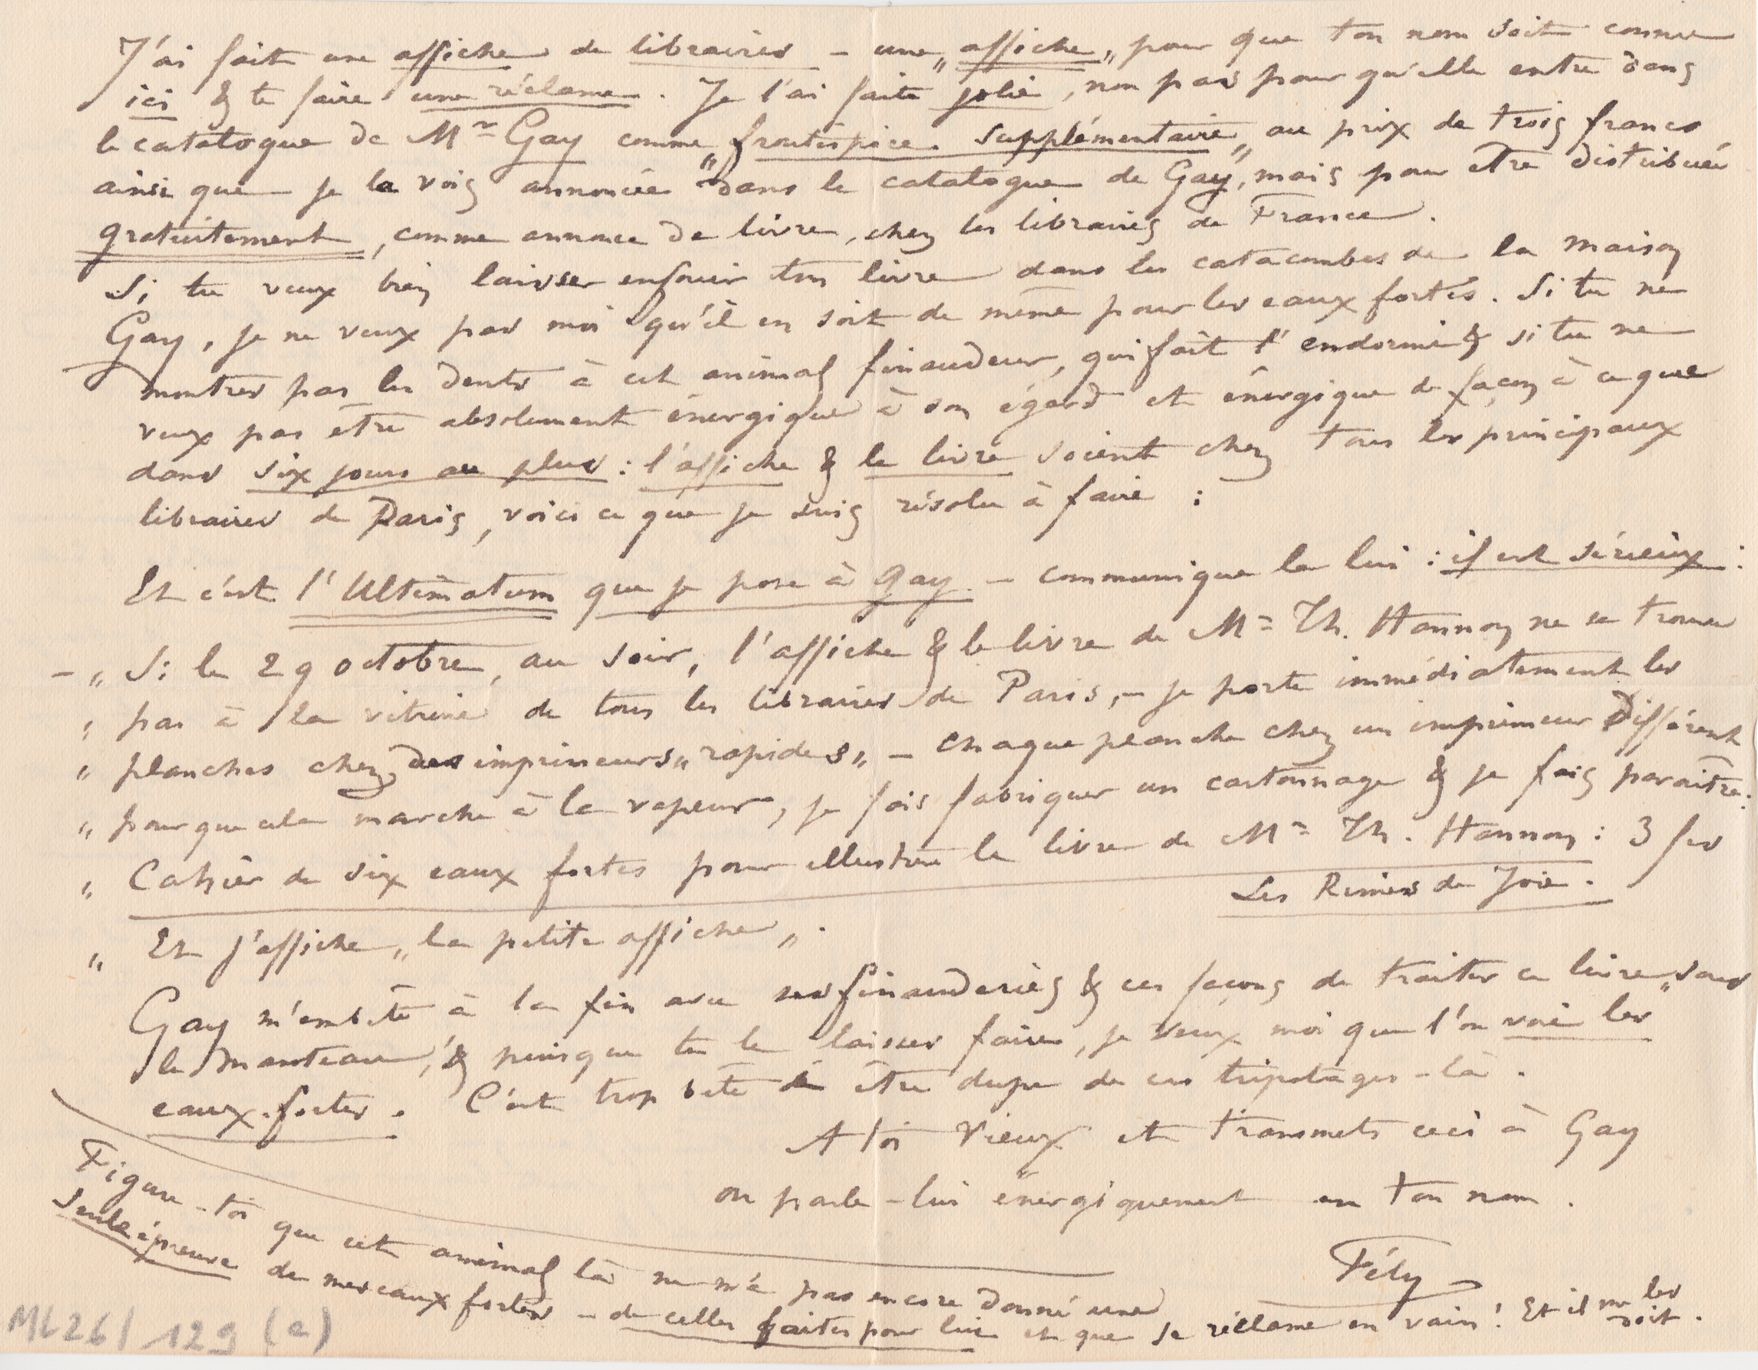 J'ai fait une affiche de libraires – une „affiche„ pour que ton nom soit connu
ici & te faire une réclame. Je l'ai faite jolie, non pas pour qu'elle entre dans
le catalogue de Mr Gay comme „frontispice. supplémentaire„ au prix de trois francs
ainsi que je la vois annoncée dans le catalogue de Gay, mais pour être distribuée
gratuitement, comme annonce de livre, chez les libraires de France.
Si tu veux bien laisser enfouir ton livre dans les catacombes de la maison
Gay, je ne veux pas moi qu'il en soit de même pour les eaux fortes. Si tu ne
montres pas les dents à cet animal finaudeur, qui fait l'endormi & si tu ne
veux pas être absolument énergique à son égard et énergique de façon à ce que
dans six jours au plus : l'affiche & le livre soient chez tous les principaux
libraires de Paris, voici ce que je suis résolu à faire :
Et c'est l'Ultimatum que je pose à Gay. – communique le lui : il est sérieux :
– „ Si le 29 octobre, au soir, l'affiche & le livre de Mr Th. Hannon ne se trouve
„ pas à la vitrine de tous les libraires de Paris, – je porte immédiatement les
„ planches chez des imprimeurs „rapides„ – chaque planche chez un imprimeur différent
„ pour que cela marche à la vapeur, je fais fabriquer un cartonnage & je fais paraître :
„ Cahier de six eaux fortes pour illustrer le livre de Mr Th. Hannon : 3 frs
Les Rimes de Joie.
„ Et j'affiche „la petite affiche„.
Gay m'embête à la fin avec ses finauderies & ces façons de traiter ce livre „sous
le manteau„ & puisque tu le laisses faire, je veux moi que l'on voie les
eaux-fortes. C'est trop bête à être dupe de ces tripotages-là.
A toi Vieux et transmets ceci à Gay
ou parle-lui énergiquement en ton nom.
Fély
Figure-toi que cet animal là ne m'a pas encore donné une
seule épreuve de mes eaux fortes – de celles faites pour lui et que je réclame en vain ! Et il me les
doit.
ML26/129 (a)